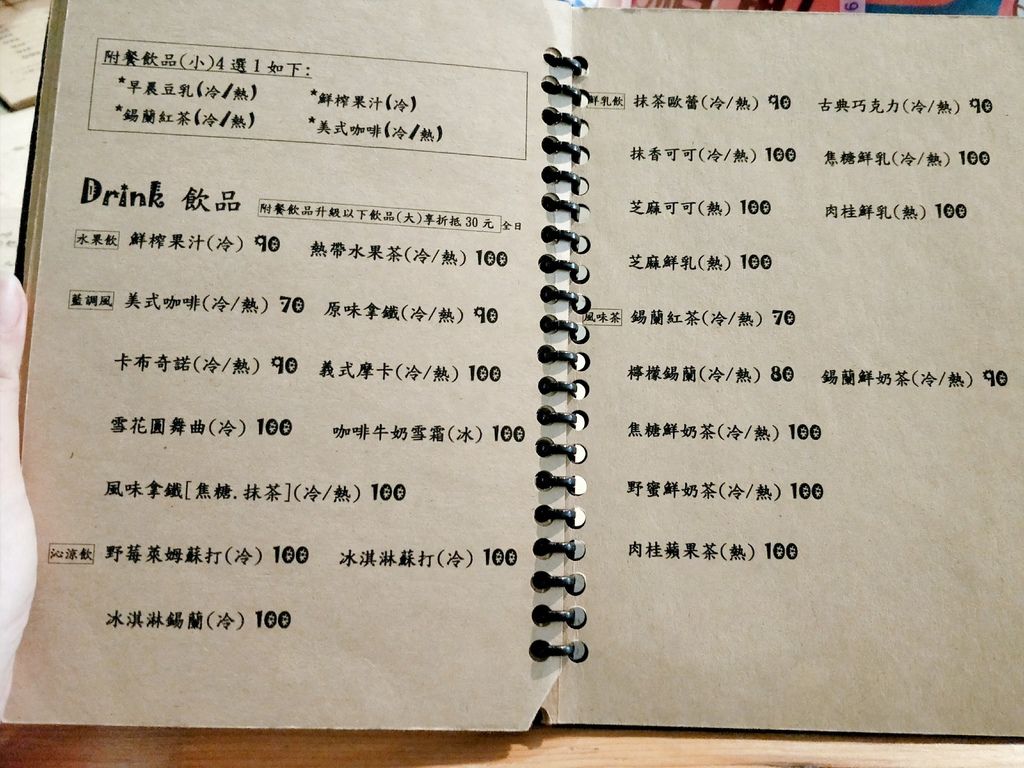 附餐飲品(小)4選1如下:
*早晨豆乳(冷/熱) *鮮榨果汁(冷)
*錫蘭紅茶(冷/熱) *美式咖啡(冷/熱)
Drink 飲品 附餐飲品升級以下飲品(大)享折抵30元 全日
水果飲 鮮榨果汁(冷) 90 熱帶水果茶(冷/熱) 100
藍調風 美式咖啡(冷/熱) 70 原味拿鐵(冷/熱) 90
卡布奇諾(冷/熱) 90 義式摩卡(冷/熱) 100
雪花圓舞曲(冷) 100 咖啡牛奶雪霜(冰) 100
風味拿鐵[焦糖.抹茶](冷/熱) 100
沁涼飲 野莓萊姆蘇打(冷) 100 冰淇淋蘇打(冷) 100
冰淇淋錫蘭(冷) 100
鮮乳飲 抹茶歐蕾(冷/熱) 90 古典巧克力(冷/熱) 90
抹香可可(冷/熱) 100 焦糖鮮乳(冷/熱) 100
芝麻可可(熱) 100 肉桂鮮乳(熱) 100
芝麻鮮乳(熱) 100
風味茶 錫蘭紅茶(冷/熱) 70
檸檬錫蘭(冷/熱) 80 錫蘭鮮奶茶(冷/熱) 90
焦糖鮮奶茶(冷/熱) 100
野蜜鮮奶茶(冷/熱) 100
肉桂蘋果茶(熱) 100